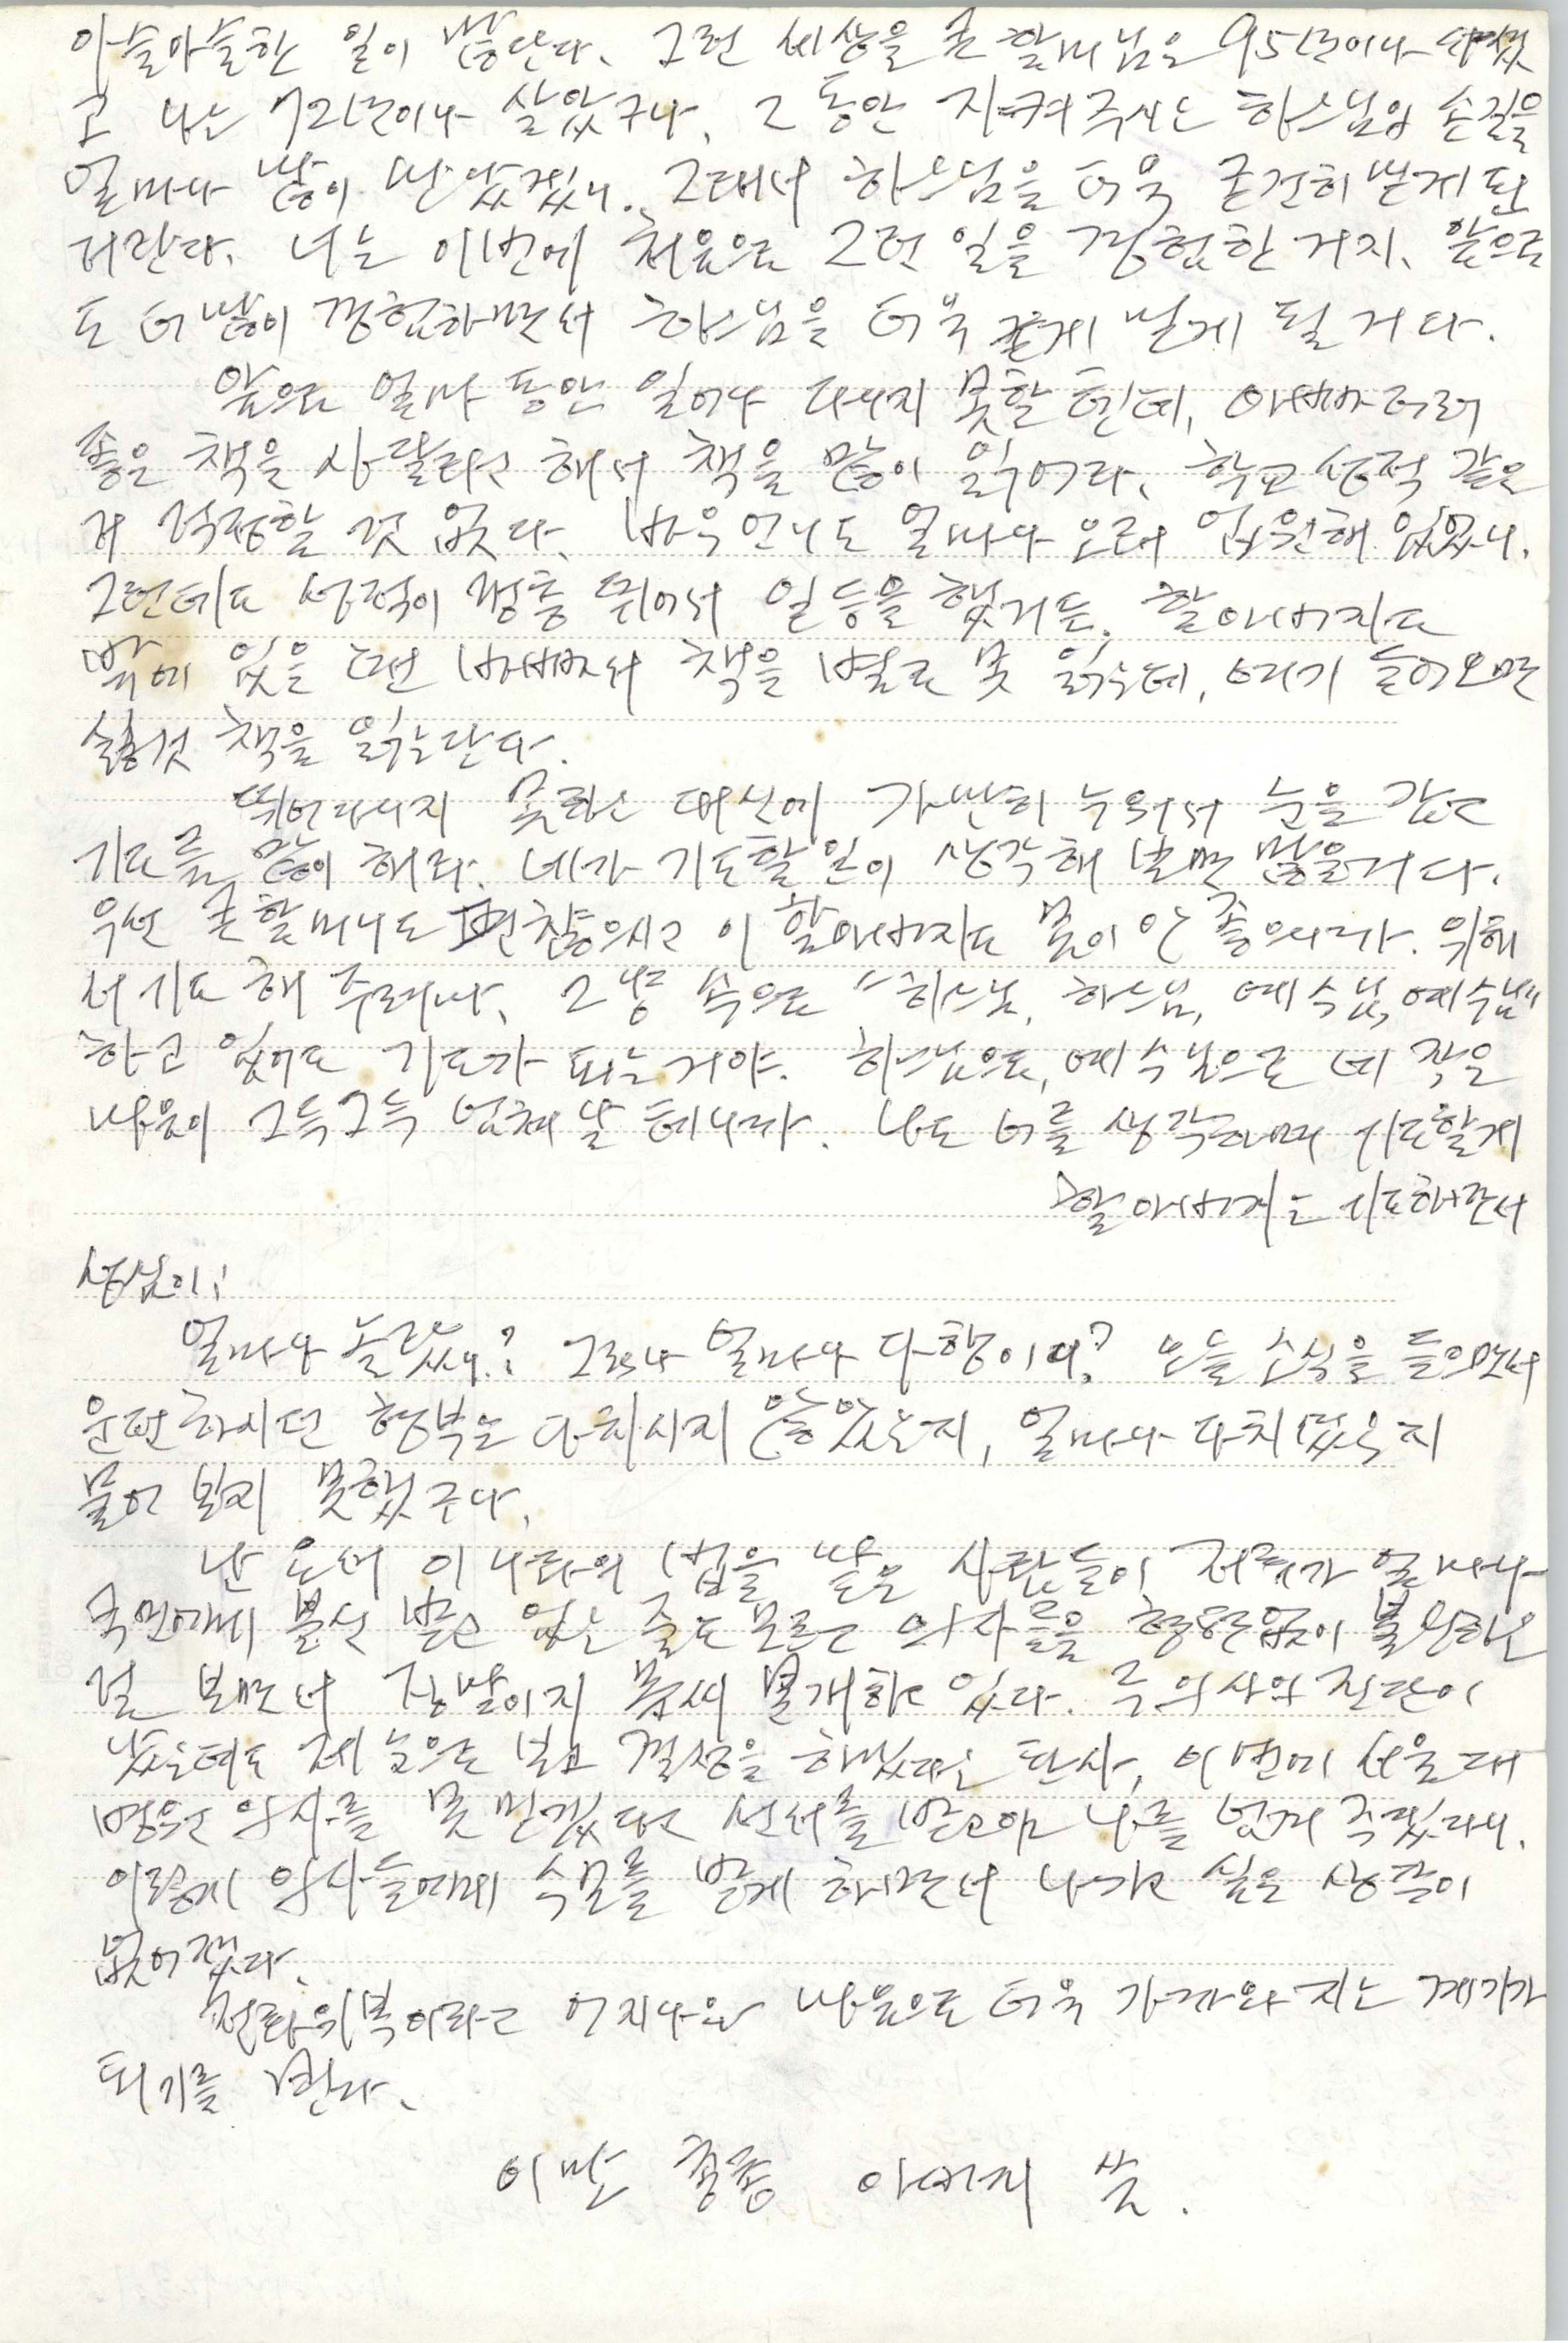 아슬아슬한 일이 많단다. 그런 세상을 큰 할머님은 95년이나 사셨
고 나는 72년이나 살았구나. 그 동안 지켜주시는 하느님의 손길을
얼마나 많이 만났겠니. 그래서 하느님을 더욱 굳건히 믿게 된
거란다. 너는 이번에 처음으로 그런 일을 경험한 거지. 앞으로
도 더 많이 경험하면서 하느님을 더욱 굳게 믿게 될 거다.
앞으로 얼마 동안 일어나 다니지 못할 텐데, 아빠더러
좋은 책을 사 달라고 해서 책을 많이 읽어라. 학교 성적 같은
거 걱정할 것 없다. 바우 언니도 얼마나 오래 입원해 있었니.
그런데도 성적이 껑충 뛰어서 일등을 했거든. 할아버지도
밖에 있을 땐 바빠서 책을 별로 못 읽는데, 여기 들어오면
실컷 책을 읽는단다.
뛰어다니지 못하는 대신에 가만히 누워서 눈을 감고
기도를 많이 해라. 네가 기도할 일이 생각해 보면 많을 거다.
우선 큰할머니도 편찮으시고 이 할아버지도 몸이 안 좋으니까. 위해
서 기도해 주려마. 그냥 속으로 "하느님, 하느님, 예수님, 예수님"
하고 있어도 기도가 되는 거야. 하느님으로, 예수님으로 네 작은
마음이 그득그득 넘쳐날 테니까. 나도 너를 생각하며 기도할게
할아버지는 기도하면서
성심이!
얼마나 놀랐니? 그러나 얼마나 다행이냐? 오늘 소식을 들으면서
운전하시던 형부는 다치시지 않았는지, 얼마나 다치셨는지
물어 보지 못했구나.
난 요새 이 나라의 법을 맡은 사람들이 저희가 얼마나
국민에게 불신 받고 있는 줄도 모르고 의사들을 형편없이 불신하는
걸 보면서 정말이지 몹시 불쾌하고 있다. 주의사의 진단이
났는데도 제 눈으로 보고 결정을 하겠다는 판사, 이번에 서울대
병원 의사를 못 믿겠다고 선서를 받고야 나를 넘겨 주겠다니.
이렇게 의사들에게 수모를 받게 하면서 나가고 싶은 생각이
없어졌다.
전화위복이라고 어지나은 마음으로 더욱 가까와 지는 계기가
되기를 빈다.
이만 총총 아버지 씀.